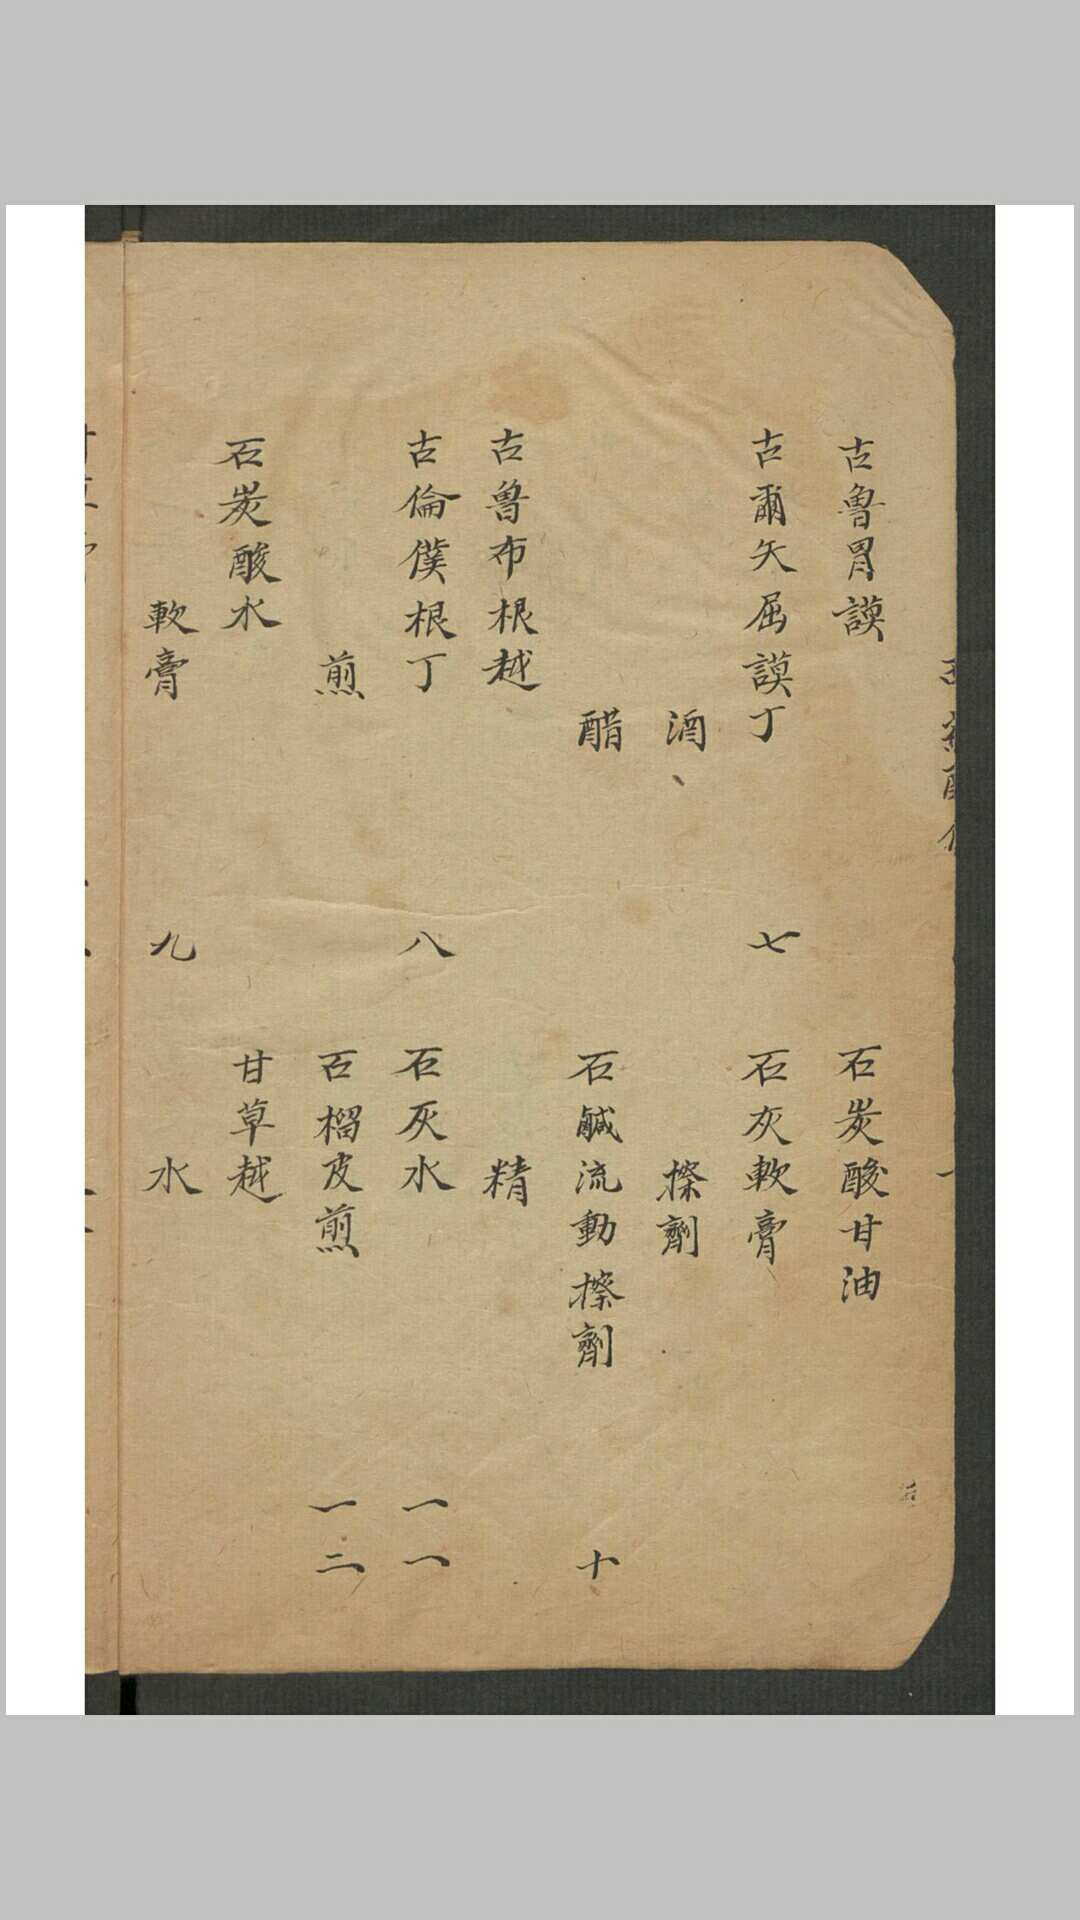 古魯胃謨
古爾矢屈謨丁
七
酒
醋
古魯布根越
古倫僕根丁
八
煎
石炭酸水
軟膏
九
石炭酸甘油
石灰軟膏
擦劑
石鹹流動擦劑
十
精
石灰水
一一
石榴皮煎
一二
甘草越
水